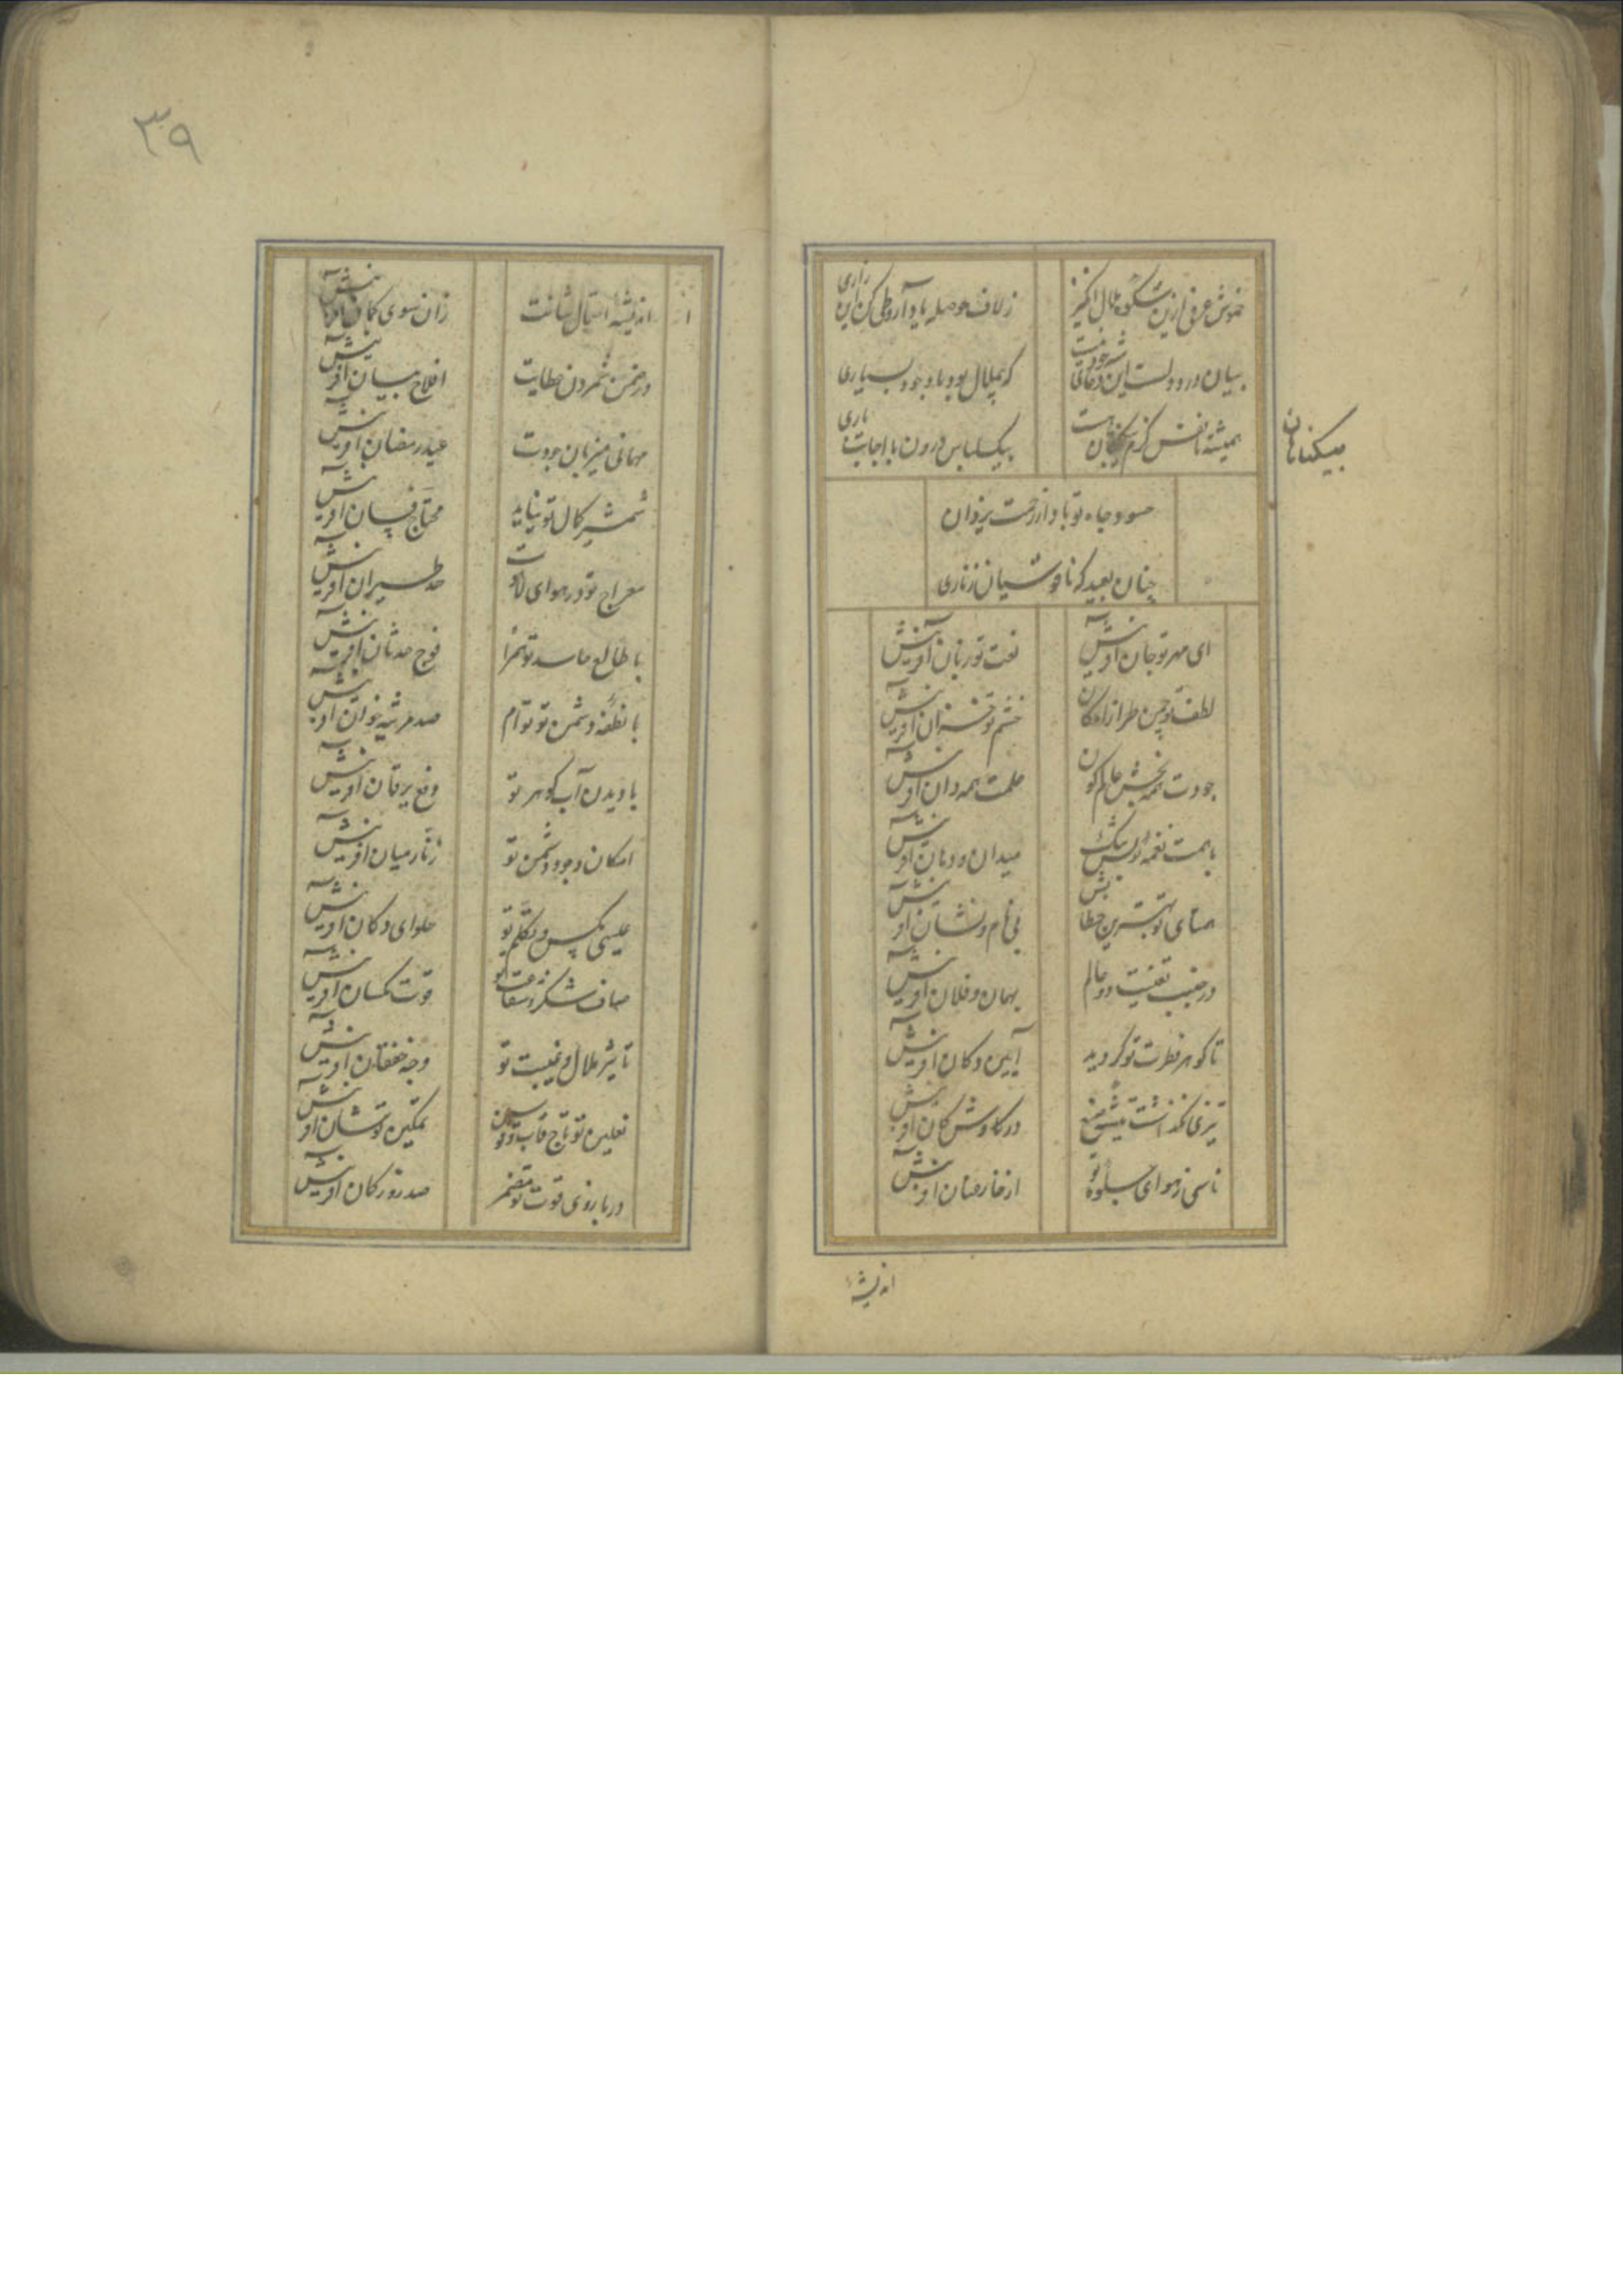 خموش عرفی ازین شکوه ملال انگیز
زلاف حوصله یاد آر وطی کن این زاری
بیان درد و دلست این دعای
که بهمال بود با وجود بسیاری
همیشه تا نفس گرم
بیک لباس درون با اجابت باری
بیکناهان
حسود جاه تو باد از رحمت یزدان
چنان بعید که ناقوسیان زناری
ای مهر تو جان آفرینش
نعت تو زبان آفرینش
لطف تو چمن طراز امکان
خشم تو خزان آفرینش
جودت همه بخش عالم کون
علمت همه دان آفرینش
با همت نغمه
میدان دوبان آفرینش
همتای تو
بی نام و نشان آفرینش
در جنب تعینت دو عالم
بهمان و فلان آفرینش
تا گوهر فطرت تو گردید
آیین دکان آفرینش
تیزی نگذاشت تیشه صنع
در کاوش کان آفرینش
ناشی ز هوای جلوه تو
ارخار عنان آفرینش
اندیشهٔ
٣٩
اندیشهٔ امتیال شانت
زان سوی کمان آفرینش
در ضمن شمردن عطایت
افلاج بیان آفرینش
مهمانی میزبان جودت
عید رمضان آفرینش
شمشیر کمال تو نیاید
محتاج فسان آفرینش
معراج تو در هوای لاهوت
حد طیران آفرینش
با طالع حاسد تو همزا
فوج حدثان آفرینش
با نطفه دشمن تو توأم
صد مرثیه خوان آفرینش
با دیدن آب گوهر تو
دفع یرقان آفرینش
امکان وجود دشمن تو
زنار میان آفرینش
عیسی مگس و تکلم تو
حلوای دکان آفرینش
صاف شکر شفاعت تو
قوت مگسان آفرینش
تاثیر ملال و غیبت تو
وجه خفقان آفرینش
نعلین تو تاج قاب قوسین
تمکین تو شان آفرینش
در بازوی قوت تو مضمر
صد زور کمان آفرینش